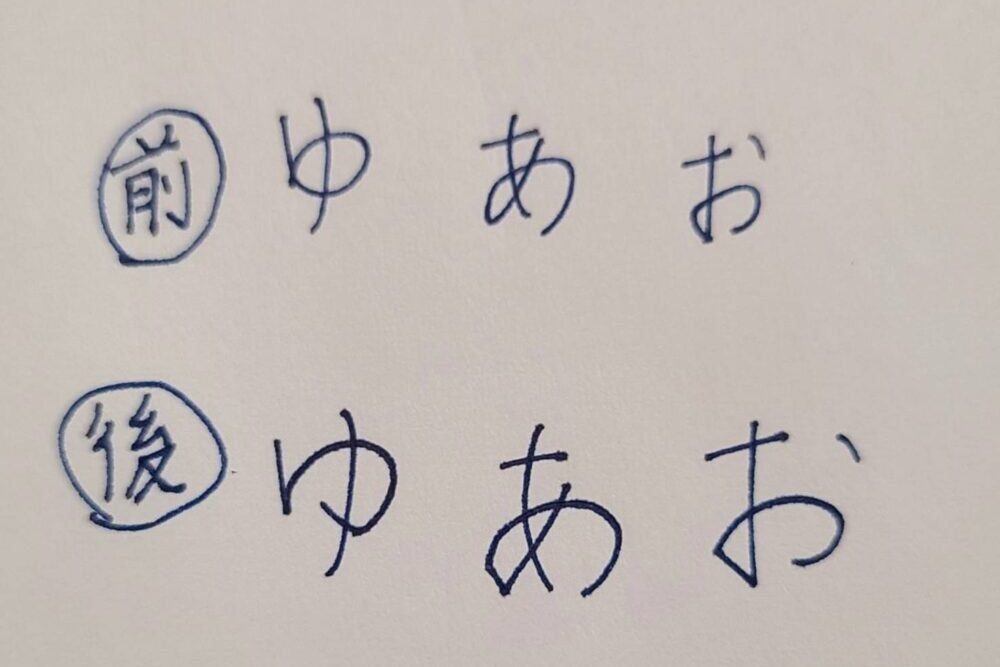 前 ゆ あ お
後 ゆ あ お